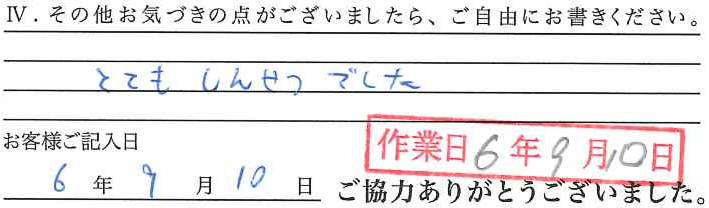 Ⅳ．その他お気づきの点がございましたら、ご自由にお書きください。
とても しんせつ でした
お客様ご記入日
作業日 6 年 9 月 10 日
6 年 9 月 10 日 ご協力ありがとうございました。